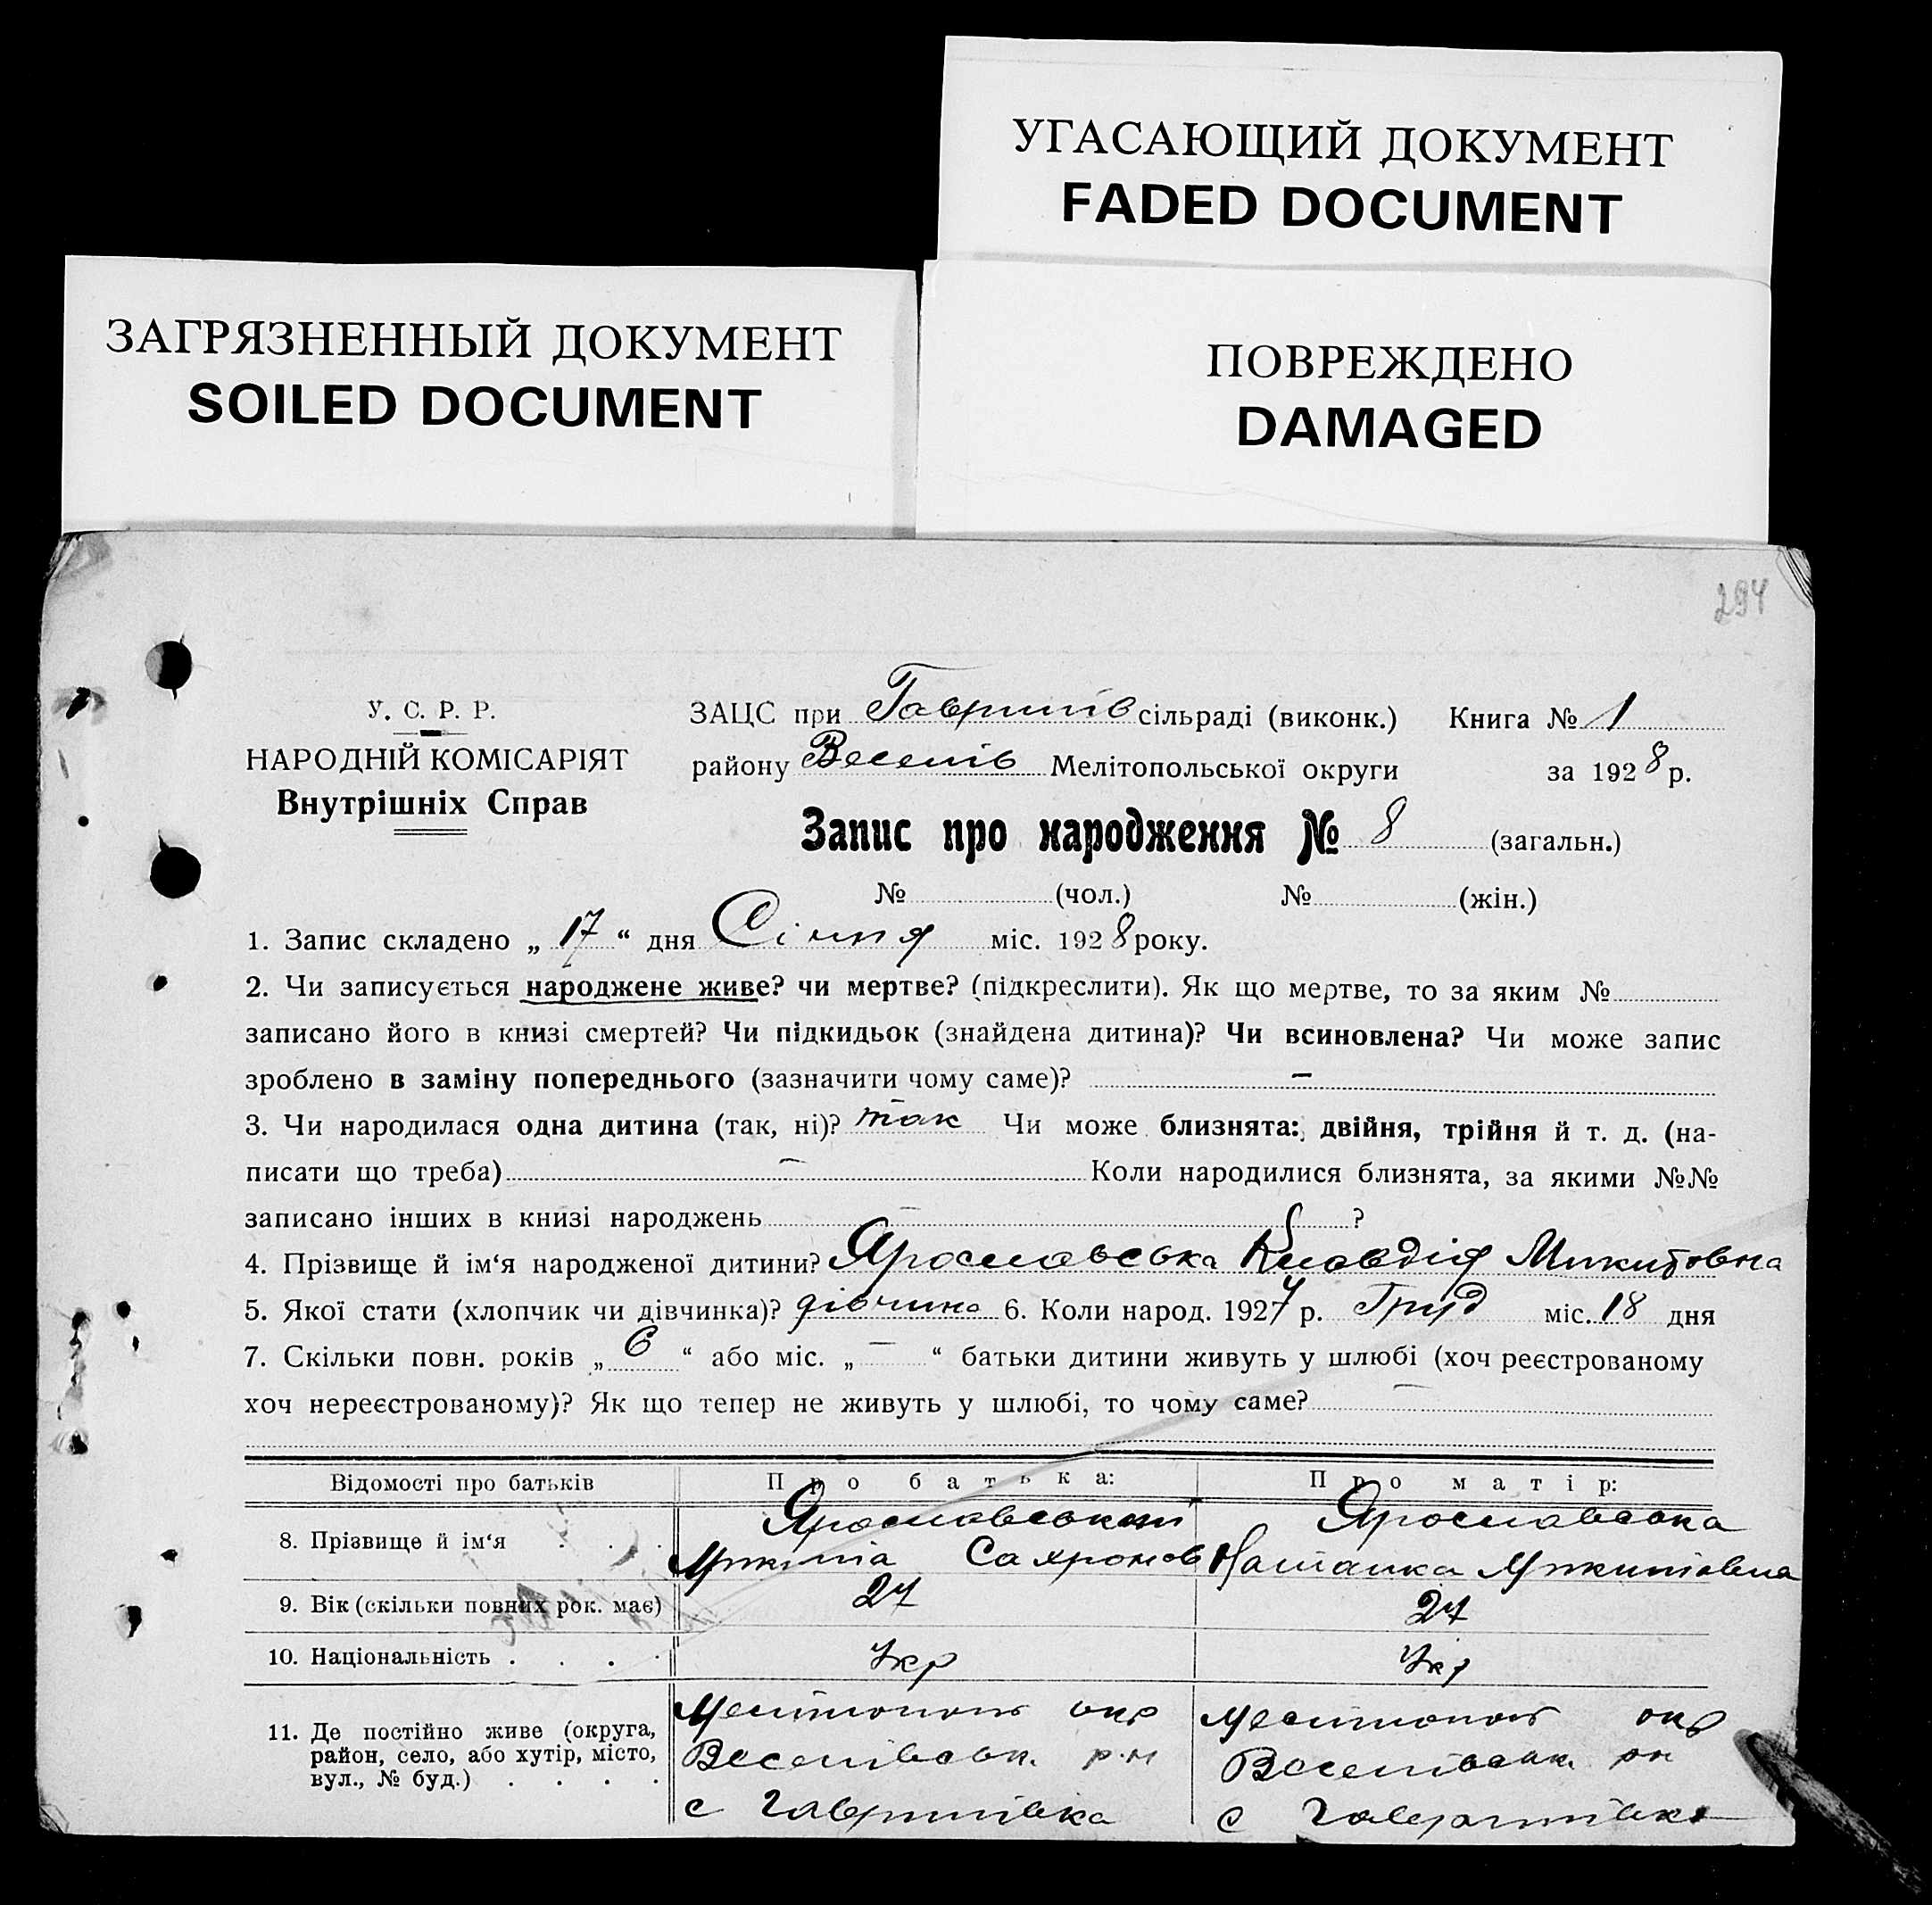 УГАСАЮЩИЙ ДОКУМЕНТ
FADED DOCUMENT
ЗАГРЯЗНЕННЫЙ ДОКУМЕНТ
SOILED DOCUMENT
ПОВРЕЖДЕНО
DAMAGED
294
У. С. Р. Р.
НАРОДНІЙ КОМІСАРІЯТ
Внутрішніх Справ
ЗАЦС при Гаврилів сільраді (виконк.) Книга № 1
району Веселів Мелітопольської округи за 1928 р.
Запис про народження № 8 (загальн.)
№ (чол.) № (жін.)
1. Запис складено „ 17 “ дня Січня міс. 1928 року.
2. Чи записується народжене живе? чи мертве? (підкреслити). Як що мертве, то за яким №
записано його в книзі смертей? Чи підкидьок (знайдена дитина)? Чи всиновлена? Чи може запис
зроблено в заміну попереднього (зазначити чому саме)? –
3. Чи народилася одна дитина (так, ні)? так Чи може близнята: двійня, трійня й т. д. (на-
писати що треба) – Коли народилися близнята, за якими №№
записано інших в книзі народжень – ?
4. Прізвище й ім‘я народженої дитини? Ярославська Клавдія Микитовна
5. Якої стати (хлопчик чи дівчинка)? дівчина 6. Коли народ. 1927 р. Груд міс. 18 дня
7. Скільки повн. років „ 6 “ або міс. „ – “ батьки дитини живуть у шлюбі (хоч реєстрованому
хоч нереєстрованому)? Як що тепер не живуть у шлюбі, то чому саме? –
Відомості про батьків Про батька: Про матір:
8. Прізвище й ім‘я . . . Ярославський Ярославська
Микита Сахронов Наталка Микитовна
9. Вік (скільки повних рок. має) 27 27
10. Національність . . . . Укр Укр
11. Де постійно живе (округа, Мелітополь окр Мелітополь окр
район, село, або хутір, місто, Веселівськ. р-н Веселівськ. рн
вул., № буд.) . . . . с Гаврилівка с Гаврилівка